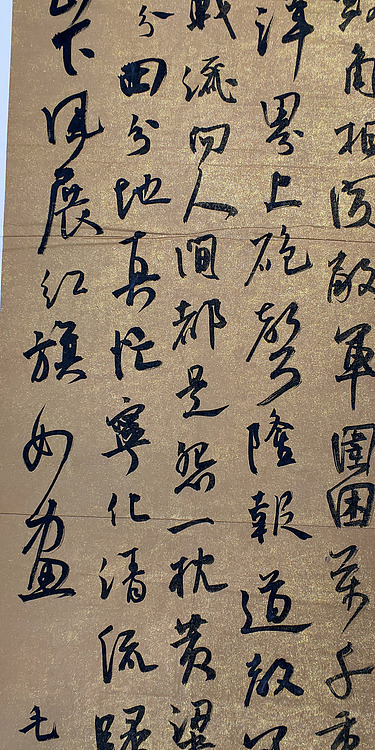 鼓角相闻敵軍圍困萬千重
洋界上砲聲隆報道敵
戰灑向人間都是怨一枕黄粱
分田分地真忙寧化清流歸
山下風展紅旗如畫 毛